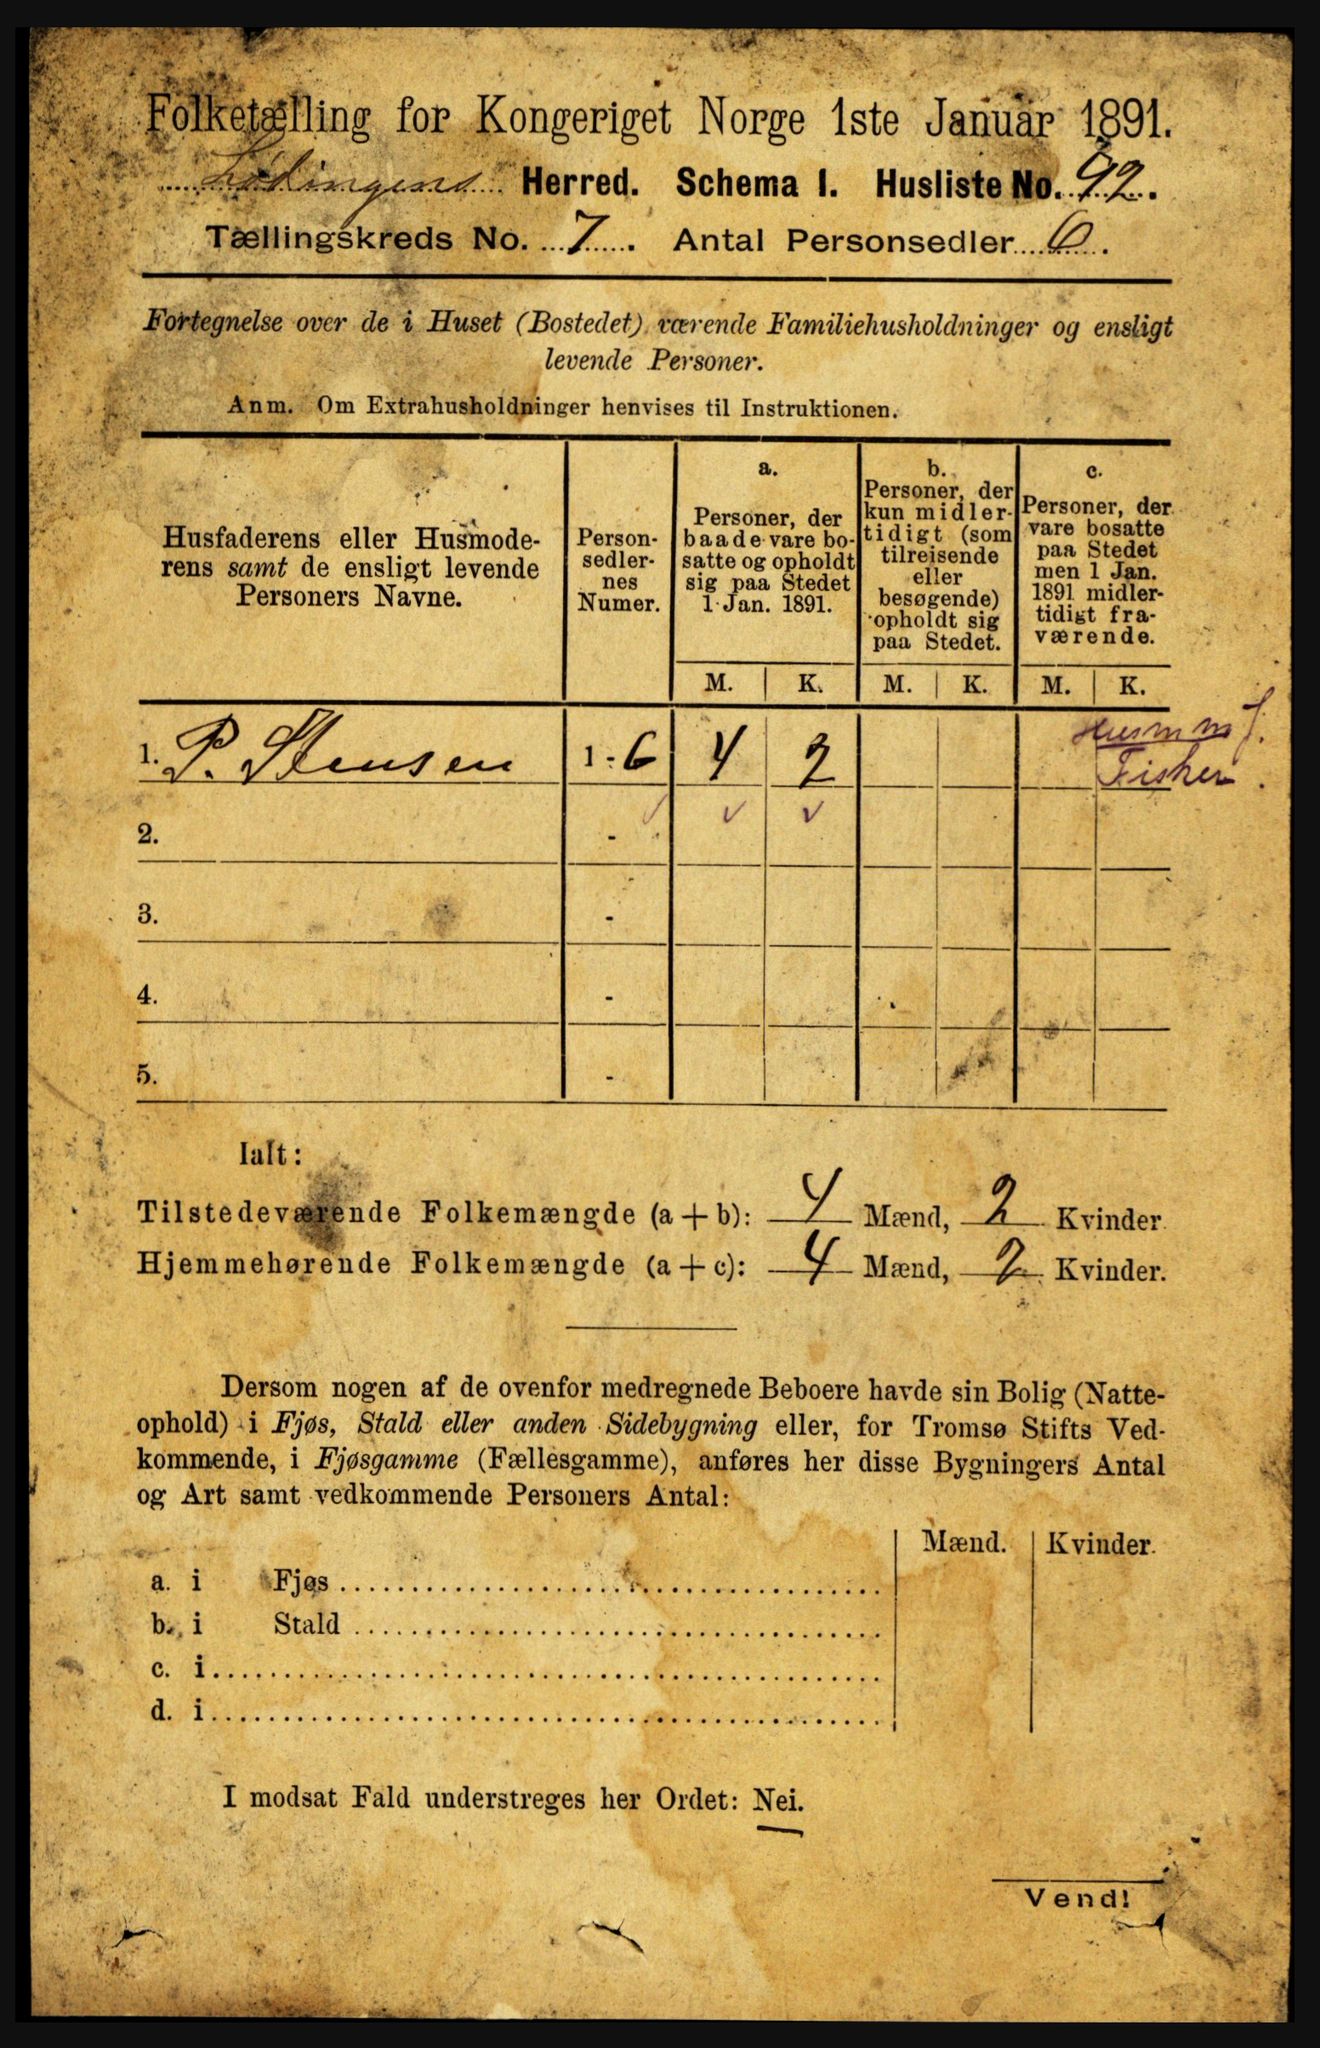 Folketælling for Kongeriget Norge 1ste Januar 1891.
Lødingens Herred. Schema I. Husliste No. 92.
Tællingskreds No. 7. Antal Personsedler 6.
Fortegnelse over de i Huset (Bostedet) værende Familiehusholdninger og ensligt
levende Personer.
Anm. Om Extrahusholdninger henvises til Instruktionen.
Husfaderens eller Husmode-
rens samt de ensligt levende
Personers Navne.
Person-
sedler-
nes
Numer.
a.
Personer, der
baade vare bo-
satte og opholdt
sig paa Stedet
1 Jan. 1891.
b.
Personer, der
kun midler-
tidigt (som
tilreisende
eller
besøgende)
opholdt sig
paa Stedet.
c.
Personer, der
vare bosatte
paa Stedet
men 1 Jan.
1891 midler-
tidigt fra-
værende.
M. K. M. K. M. K.
1. P. Stensen 1 - 6 4 2 Husmm f.
Fisker.
2. -
3. -
4. -
5. -
Ialt:
Tilstedeværende Folkemængde (a + b): 4 Mænd, 2 Kvinder
Hjemmehørende Folkemængde (a + c): 4 Mænd, 2 Kvinder.
Dersom nogen af de ovenfor medregnede Beboere havde sin Bolig (Natte-
ophold) i Fjøs, Stald eller anden Sidebygning eller, for Tromsø Stifts Ved-
kommende, i Fjøsgamme (Fællesgamme), anføres her disse Bygningers Antal
og Art samt vedkommende Personers Antal:
Mænd. Kvinder.
a. i Fjøs
b. i Stald
c. i
d. i
I modsat Fald understreges her Ordet: Nei.
Vend!